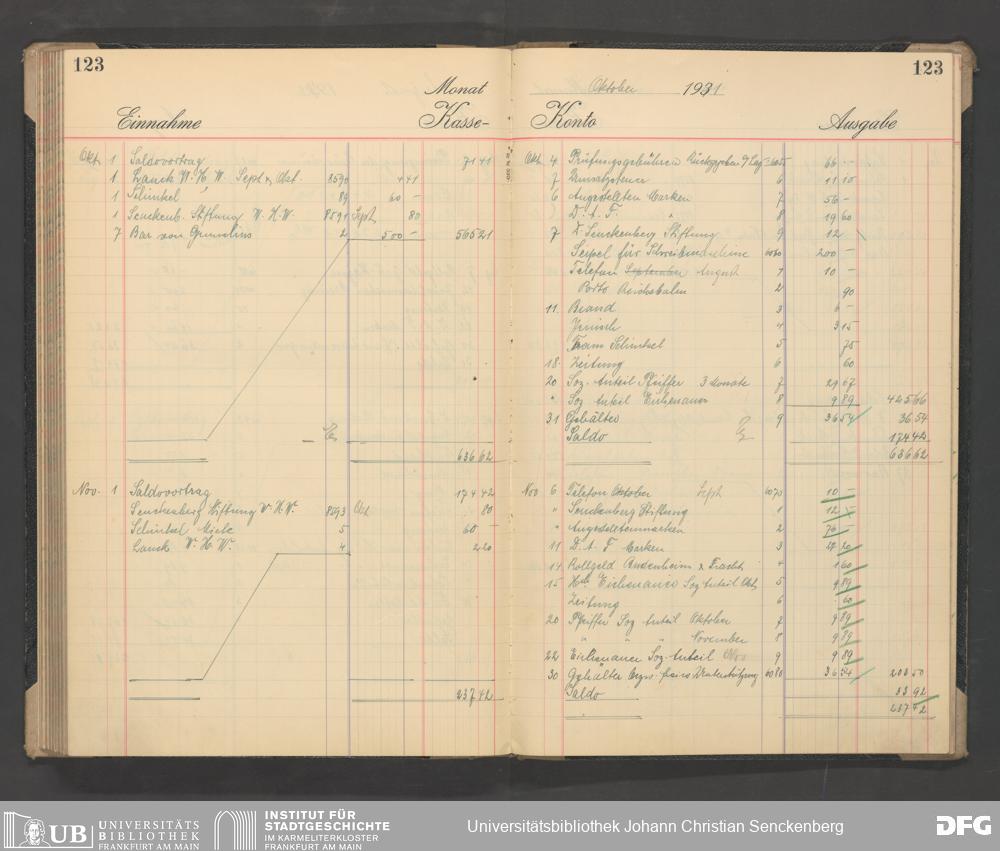 123
Monat
Einnahme Kasse-
Okt. 1 Saldovortrag 71 41
1 Lauck W. H. W. Sept & Okt. 8590 4 41
1 Schinkel 89 60 —
1 Senckenb. Stiftung W. H. W. 8591 Sept. 80
7 Bar von 2 500 — 565 21
636 62
Nov. 1 Saldovortrag 174 42
Senckenberg Stiftung W. H. W. 8593 Okt 80
Schinkel Miete 5 60 —
Lauck W. H. W. 4 2 20
237 42
123
Oktober 1931
Konto Ausgabe
Okt. 4 Prüfungsgebühren 66 —
7 Umsatzsteuer 6 11 10
6 Angestellten Marken 7 56 —
D. A. F. 8 19 60
7 Senckenberg Stiftung 9 12
Seipel für Schreibmaschine 6060 200 —
Telefon September August 1 10 —
Porto Reichsbahn 2 90
11 Brand 3 6 —
4 3 15
Schinkel 5 75
18 Zeitung 6 60
20 Soz. Anteil Pfeiffer 3 Monate 7 29 67
" Soz Anteil Eichenauer 8 9 89 425 66
31 Gehälter 9 36 54 36 54
Saldo 174 42
636 62
Nov 6 Telefon Oktober Sept 6070 10 —
" Senckenberg Stiftung 1 12
" Angestelltenmarken 2 76
11 D. A. F. Marken 3 27 20
14 Rollgeld & Fracht 4 1 60
15 Eichenauer Soz Anteil Okt. 5 9 89
Zeitung 6 60
20 Pfeiffer Soz Anteil Oktober 7 9 89
" " " November 8 9 89
22 Eichenauer Soz. Anteil Nov 9 9 89
30 Gehälter Unterstützung 6080 36 54 203 50
Saldo 33 92
237 42
UB UNIVERSITÄTS
BIBLIOTHEK
FRANKFURT AM MAIN
INSTITUT FÜR
STADTGESCHICHTE
IM KARMELITERKLOSTER
FRANKFURT AM MAIN
Universitätsbibliothek Johann Christian Senckenberg
DFG